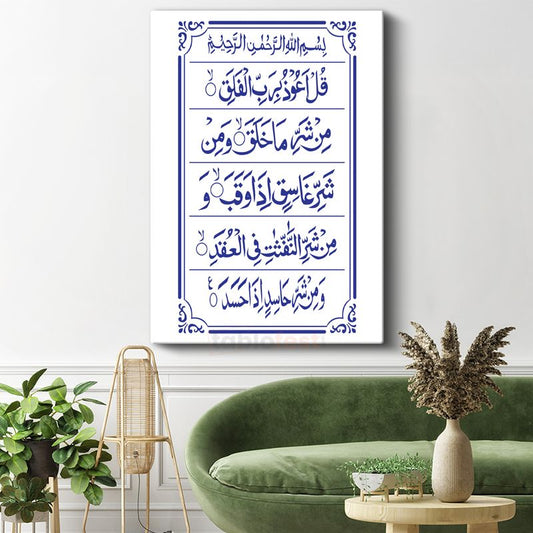 بِسْمِ اللهِ الرَّحْمٰنِ الرَّحِيْمِ
قُلْ اَعُوْذُ بِرَبِّ الْفَلَقِ ۙ
مِنْ شَرِّ مَا خَلَقَ ۙ وَمِنْ
شَرِّ غَاسِقٍ اِذَا وَقَبَ ۙ وَ
مِنْ شَرِّ النَّفّٰثٰتِ فِى الْعُقَدِ ۙ
وَمِنْ شَرِّ حَاسِدٍ اِذَا حَسَدَ